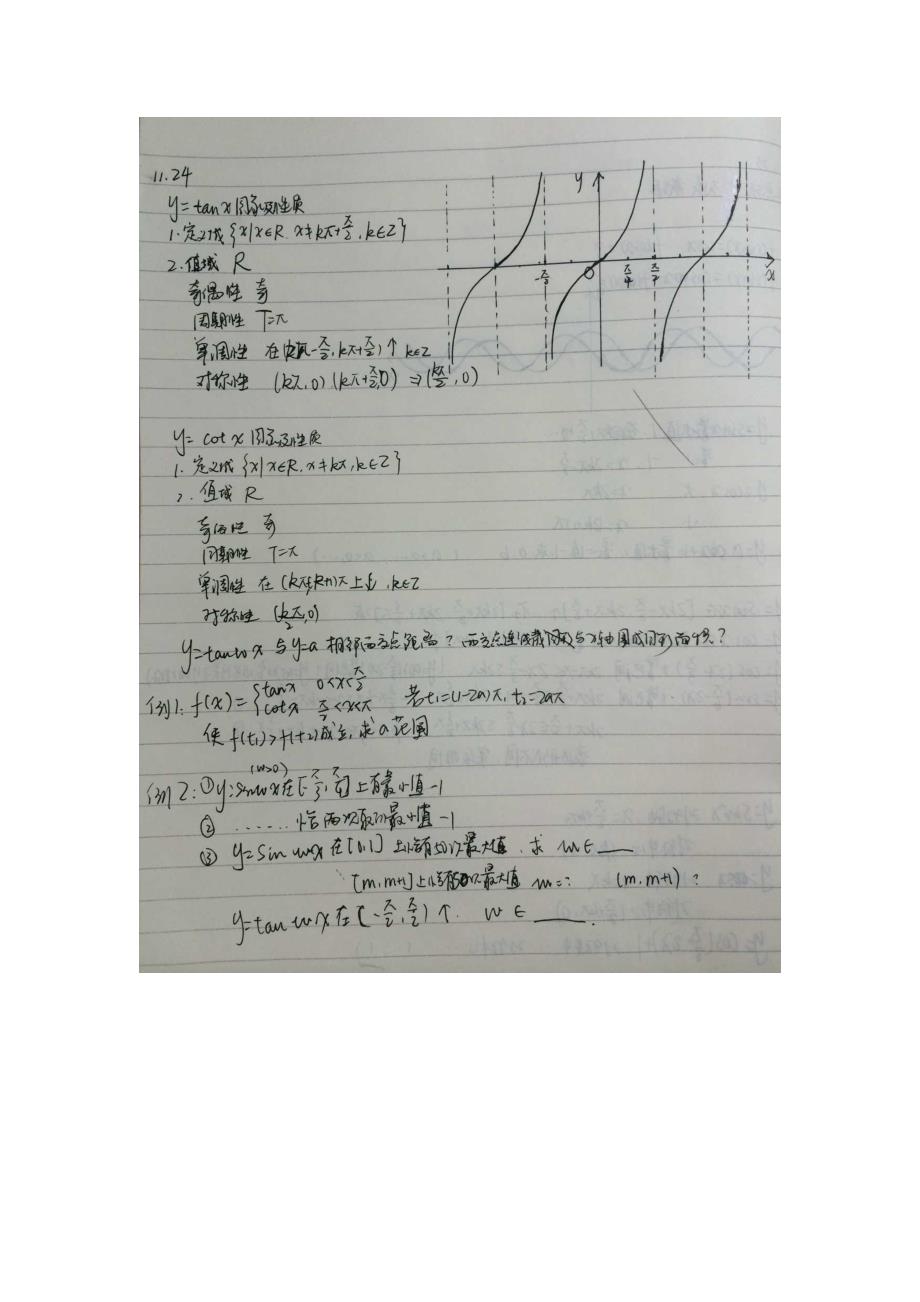 11.24
y=tanx图象及性质
1.定义域{x|x∈R, x≠kπ+π/2, k∈Z}
2.值域 R
奇偶性 奇
周期性 T=π
单调性 在(kπ-π/2, kπ+π/2)↑ k∈Z
对称性 (kπ,0) (kπ+π/2,0) ⇒ (kπ/2,0)
y
-π/2 O π/4 π/2 x
y=cotx图象及性质
1. 定义域{x|x∈R, x≠kπ, k∈Z}
2. 值域 R
奇偶性 奇
周期性 T=π
单调性 在(kπ,(k+1)π)上↓, k∈Z
对称性 (kπ/2,0)
y=tanωx 与 y=a 相邻两交点距离? 两交点连成线段与x轴围成图形面积?
例1: f(x)={tanx 0<x<π/2 cotx π/2<x<π 若t₁=(1-2a)π, t₂=2aπ
使f(t₁)>f(t₂)成立, 求a范围
(w>0)
例2: ① y=sinwx在[-π/3, π/4]上有最小值-1
② ...... 恰两次取得最小值-1
③ y=sin wπx 在[0,1]上恰有50次最大值, 求 w∈___
[m,m+1]上恰有50次最大值 w=? (m,m+1)?
y=tan wx在(-π/2, π/2)↑. w∈____.